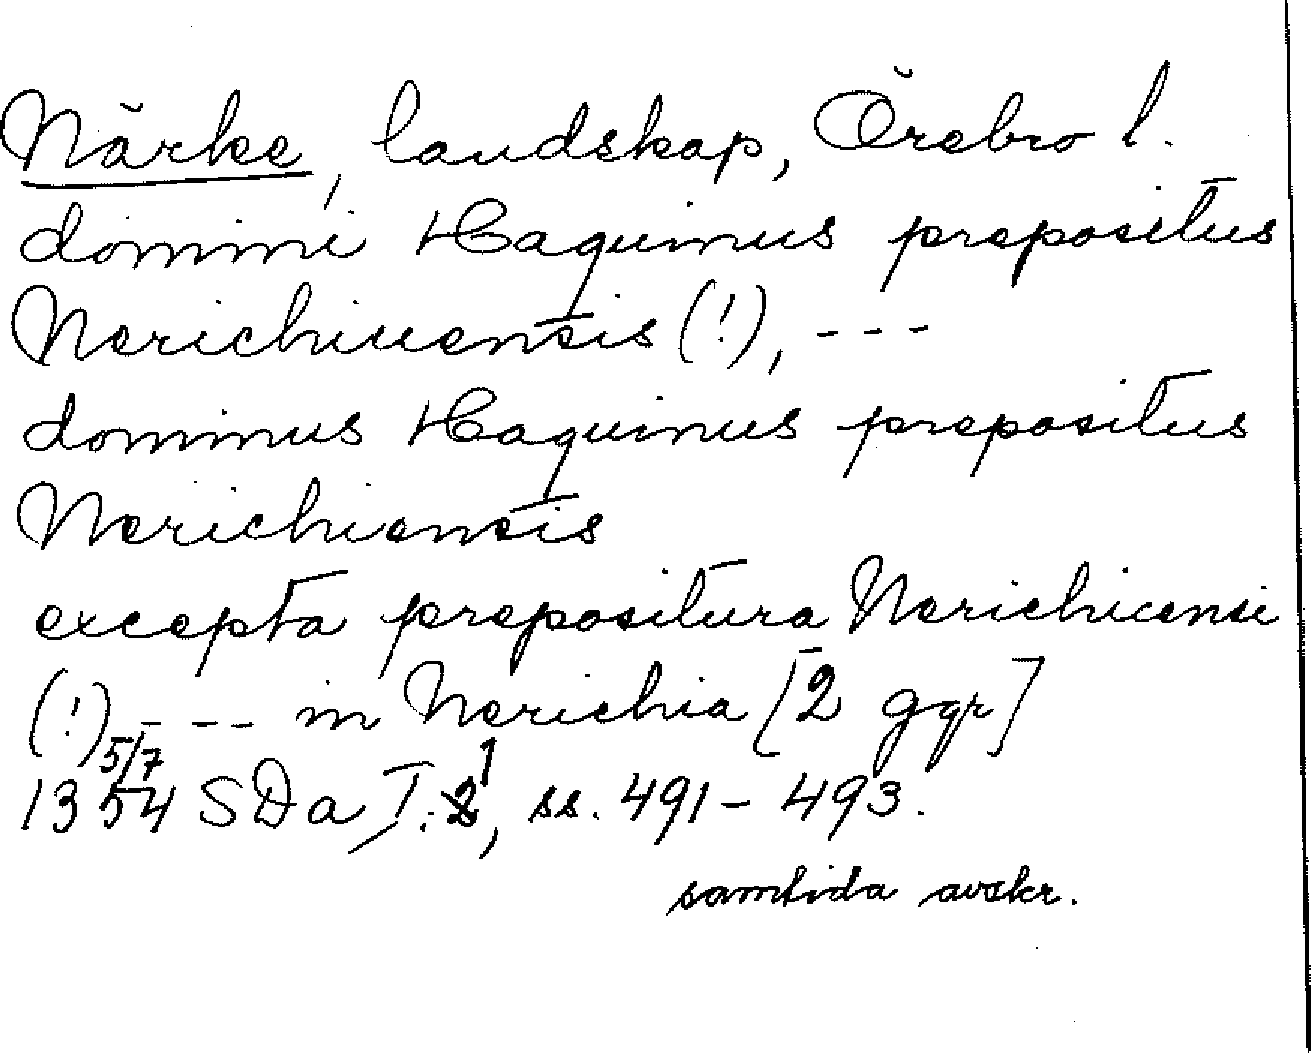 Närke, landskap, Örebro l.
domini Haquinus prepositus
Nerichiuensis (!), ---
dominus Haquinus prepositus
Nerichiensis
excepta prepositura Nerichicensi
(!) --- in Nerichia [2 ggr]
5/7 1
1354 SDa I:2, ss. 491-493.
samtida avskr.